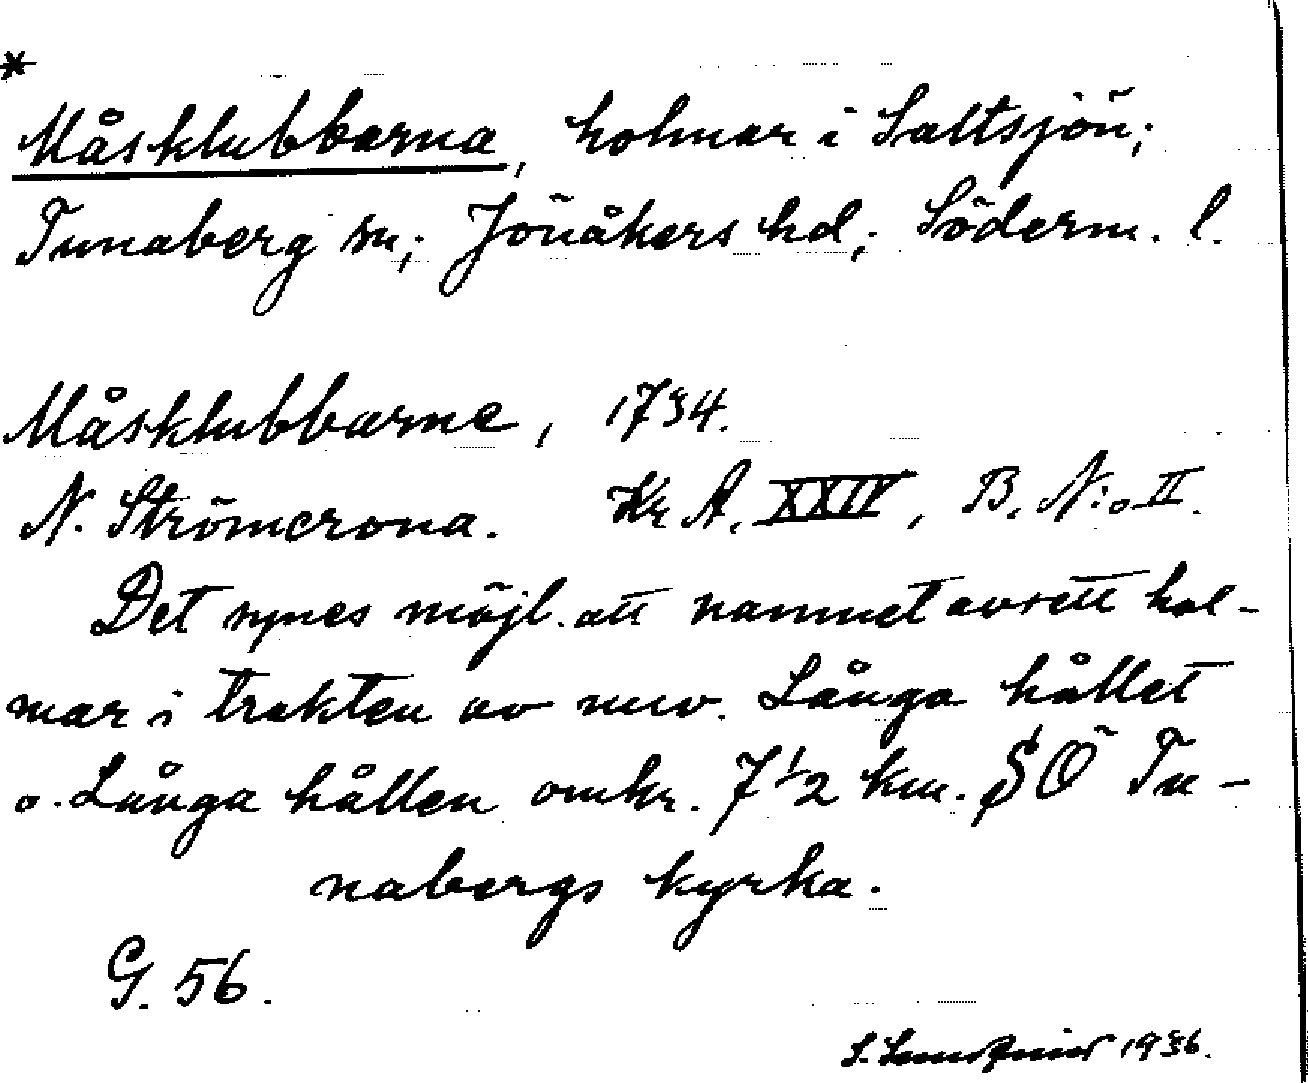 *
Måsklubbarna, holmar i Saltsjön;
Tunaberg sn; Jönåkers hd; Söderm. l.
Måsklubbarne, 1734.
N. Strömcrona. Kr A. XXIV, B. N:o II.
Det synes möjl. att namnet avsett hol-
mar i trakten av nuv. Långa hållet
o. Långa hållen omkr. 7 1/2 km. SÖ Tu-
nabergs kyrka.
G. 56.
S. 1936.